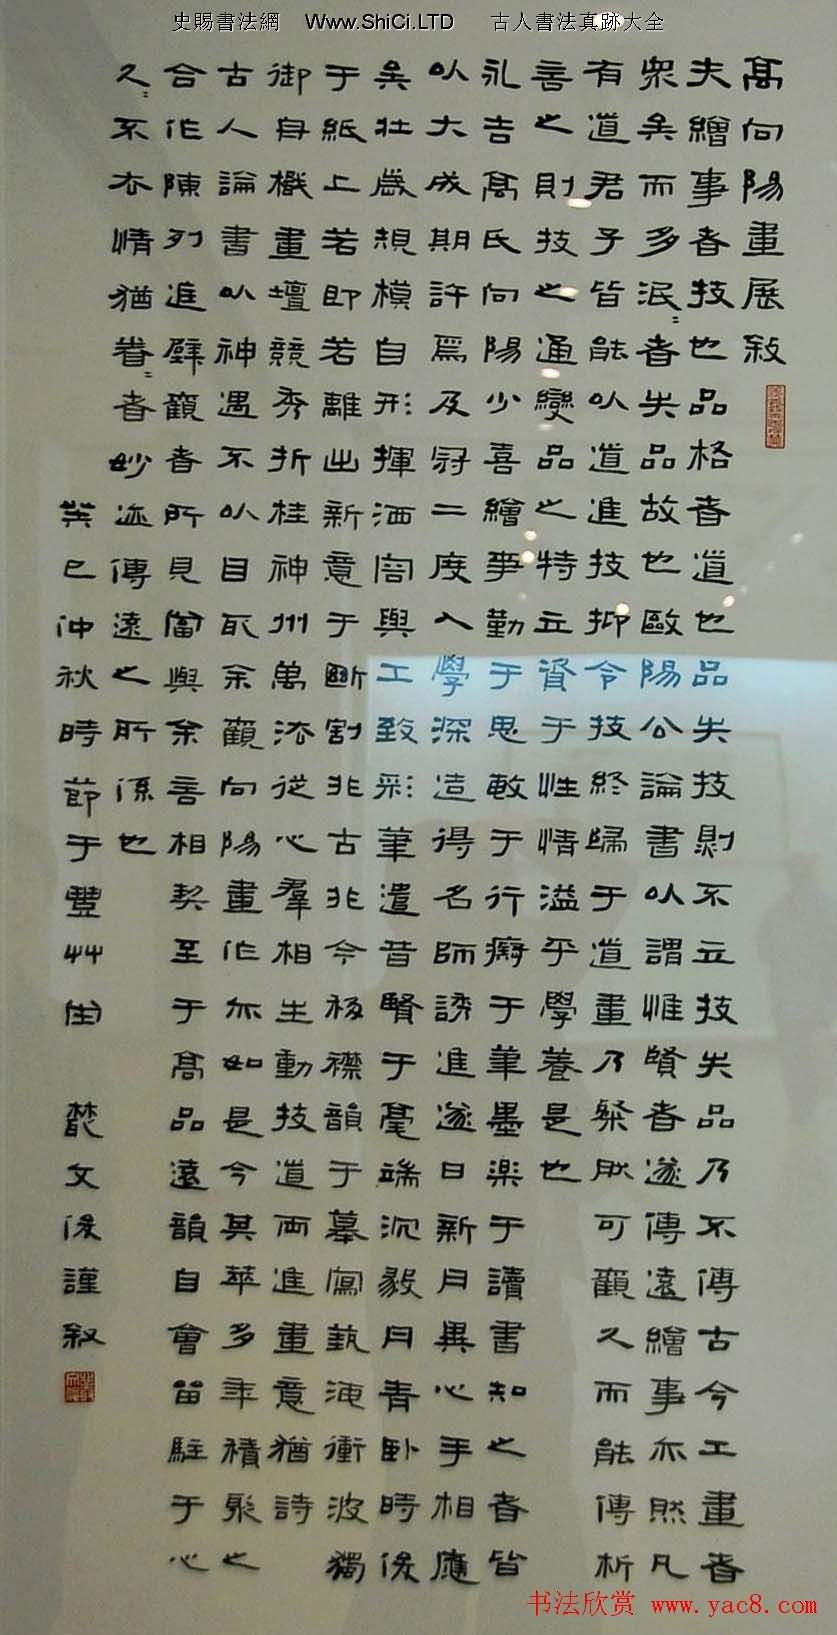 史賜書法網 Www.ShiCi.LTD 古人書法真跡大全
高向陽畫展敍
夫繪事者技也品格者道也品失技則不立技失品乃不傳古今工畫者
眾矣而多泯〻者失品故也歐陽公論書以謂惟賢者遂傳遠繪事亦然凡
有道君子皆能以道進技抑令技終歸于道畫乃粲然可觀久而能傳析
言之則技之通變品之特立資于性情溢乎學養是也
永吉高氏向陽少喜繪事勤于思敏于行癖于筆墨樂于讀書知之者皆
以大成期許焉及冠二度入學深造得名師誘進遂日新月異心手相應
矣壯歲規模自形揮洒宕與工致彩筆遣昔賢于毫端沉毅丹青卧時候
于紙上若即若離出新意于斷割非古非今極襟韻于摹寫藝海衝波獨
御舟檝畫壇競秀折桂神州萬法從心羣相生動技道兩進畫意猶詩
古人論書以神遇不以目取余觀向陽畫作亦如是今其萃多年積聚之
合作陳列進壁觀者所見當與余言相契至于高品遠韻自會留駐于心
久〻不去情猶眷〻者妙迹傳遠之所係也
癸巳仲秋時節于豐艸 叢文俊謹敍
书法欣赏 www.yac8.com